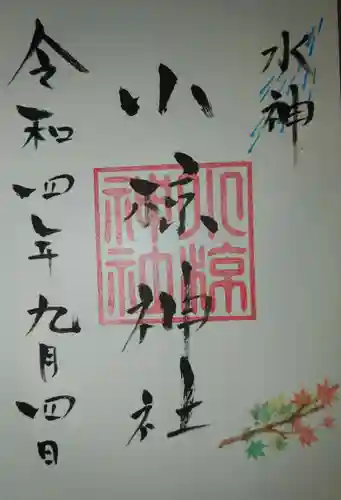 水神
小椋神社
令和四年九月四日
小椋
神社